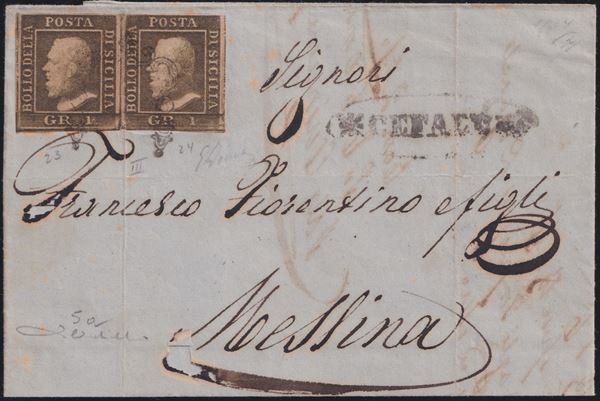 POSTA POSTA
BOLLO DELLA DI SICILIA BOLLO DELLA DI SICILIA
GR. 1 GR. 1
Signori
CEFALU
23 III 24
Francesco Fiorentino e figli
Messina
5a